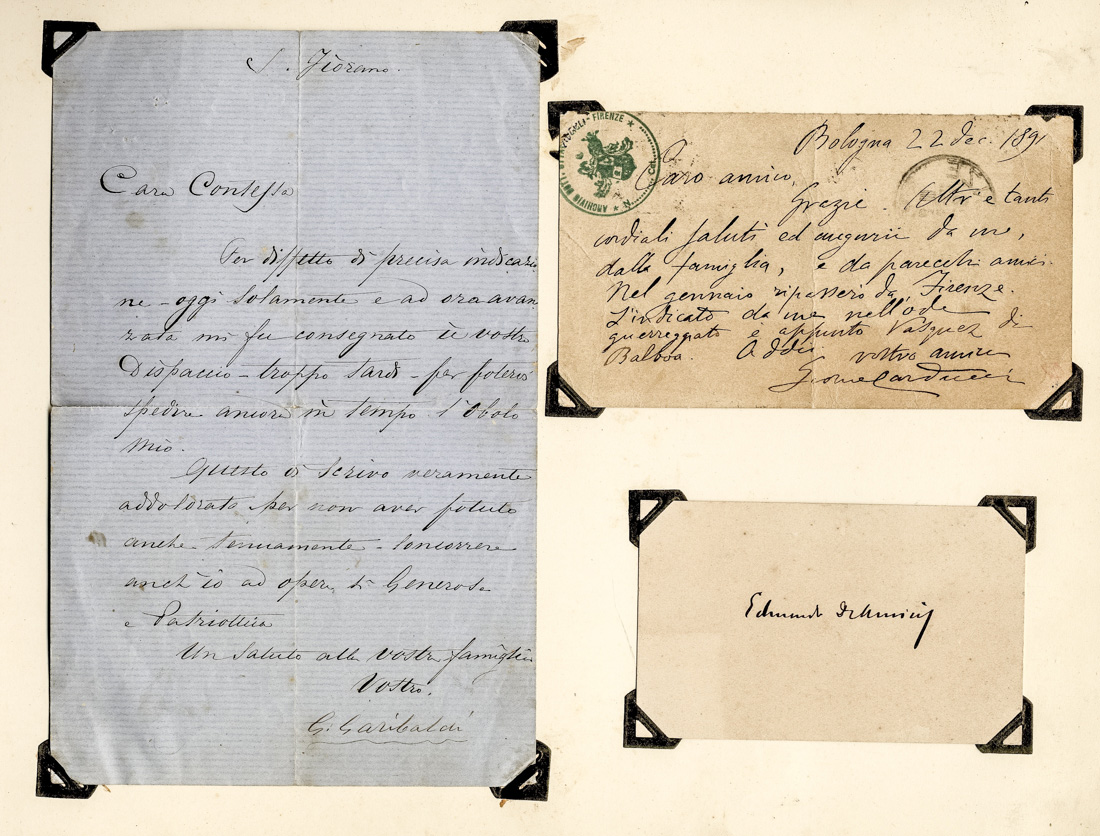 S. Fiorano.
Cara Contessa
Per difetto di precisa indicazio
ne - oggi solamente e ad ora avan
zata mi fu consegnato il vostro
Dispaccio - troppo tardi - per potervi
spedire ancora in tempo l'obolo
mio.
Questo vi scrivo veramente
addolorato per non aver potuto
anche tenuamente - concorrere
anch'io ad opera sì Generosa
e Patriottica
Un saluto alla vostra famiglia
Vostro.
G. Garibaldi
FIRENZE ★
★ ARCHIVIO
Bologna 22 dec. 1891
Caro amico,
Grazie. Altri e tanti
cordiali saluti ed augurii da me,
dalla famiglia, e da parecchi amici.
Nel gennaio ripasserò da Firenze.
L'indicato da me nell'ode
guerreggiato è appunto Vasquez di
Balboa. Addio vostro amico
Giosue Carducci
Edmondo De Amicis